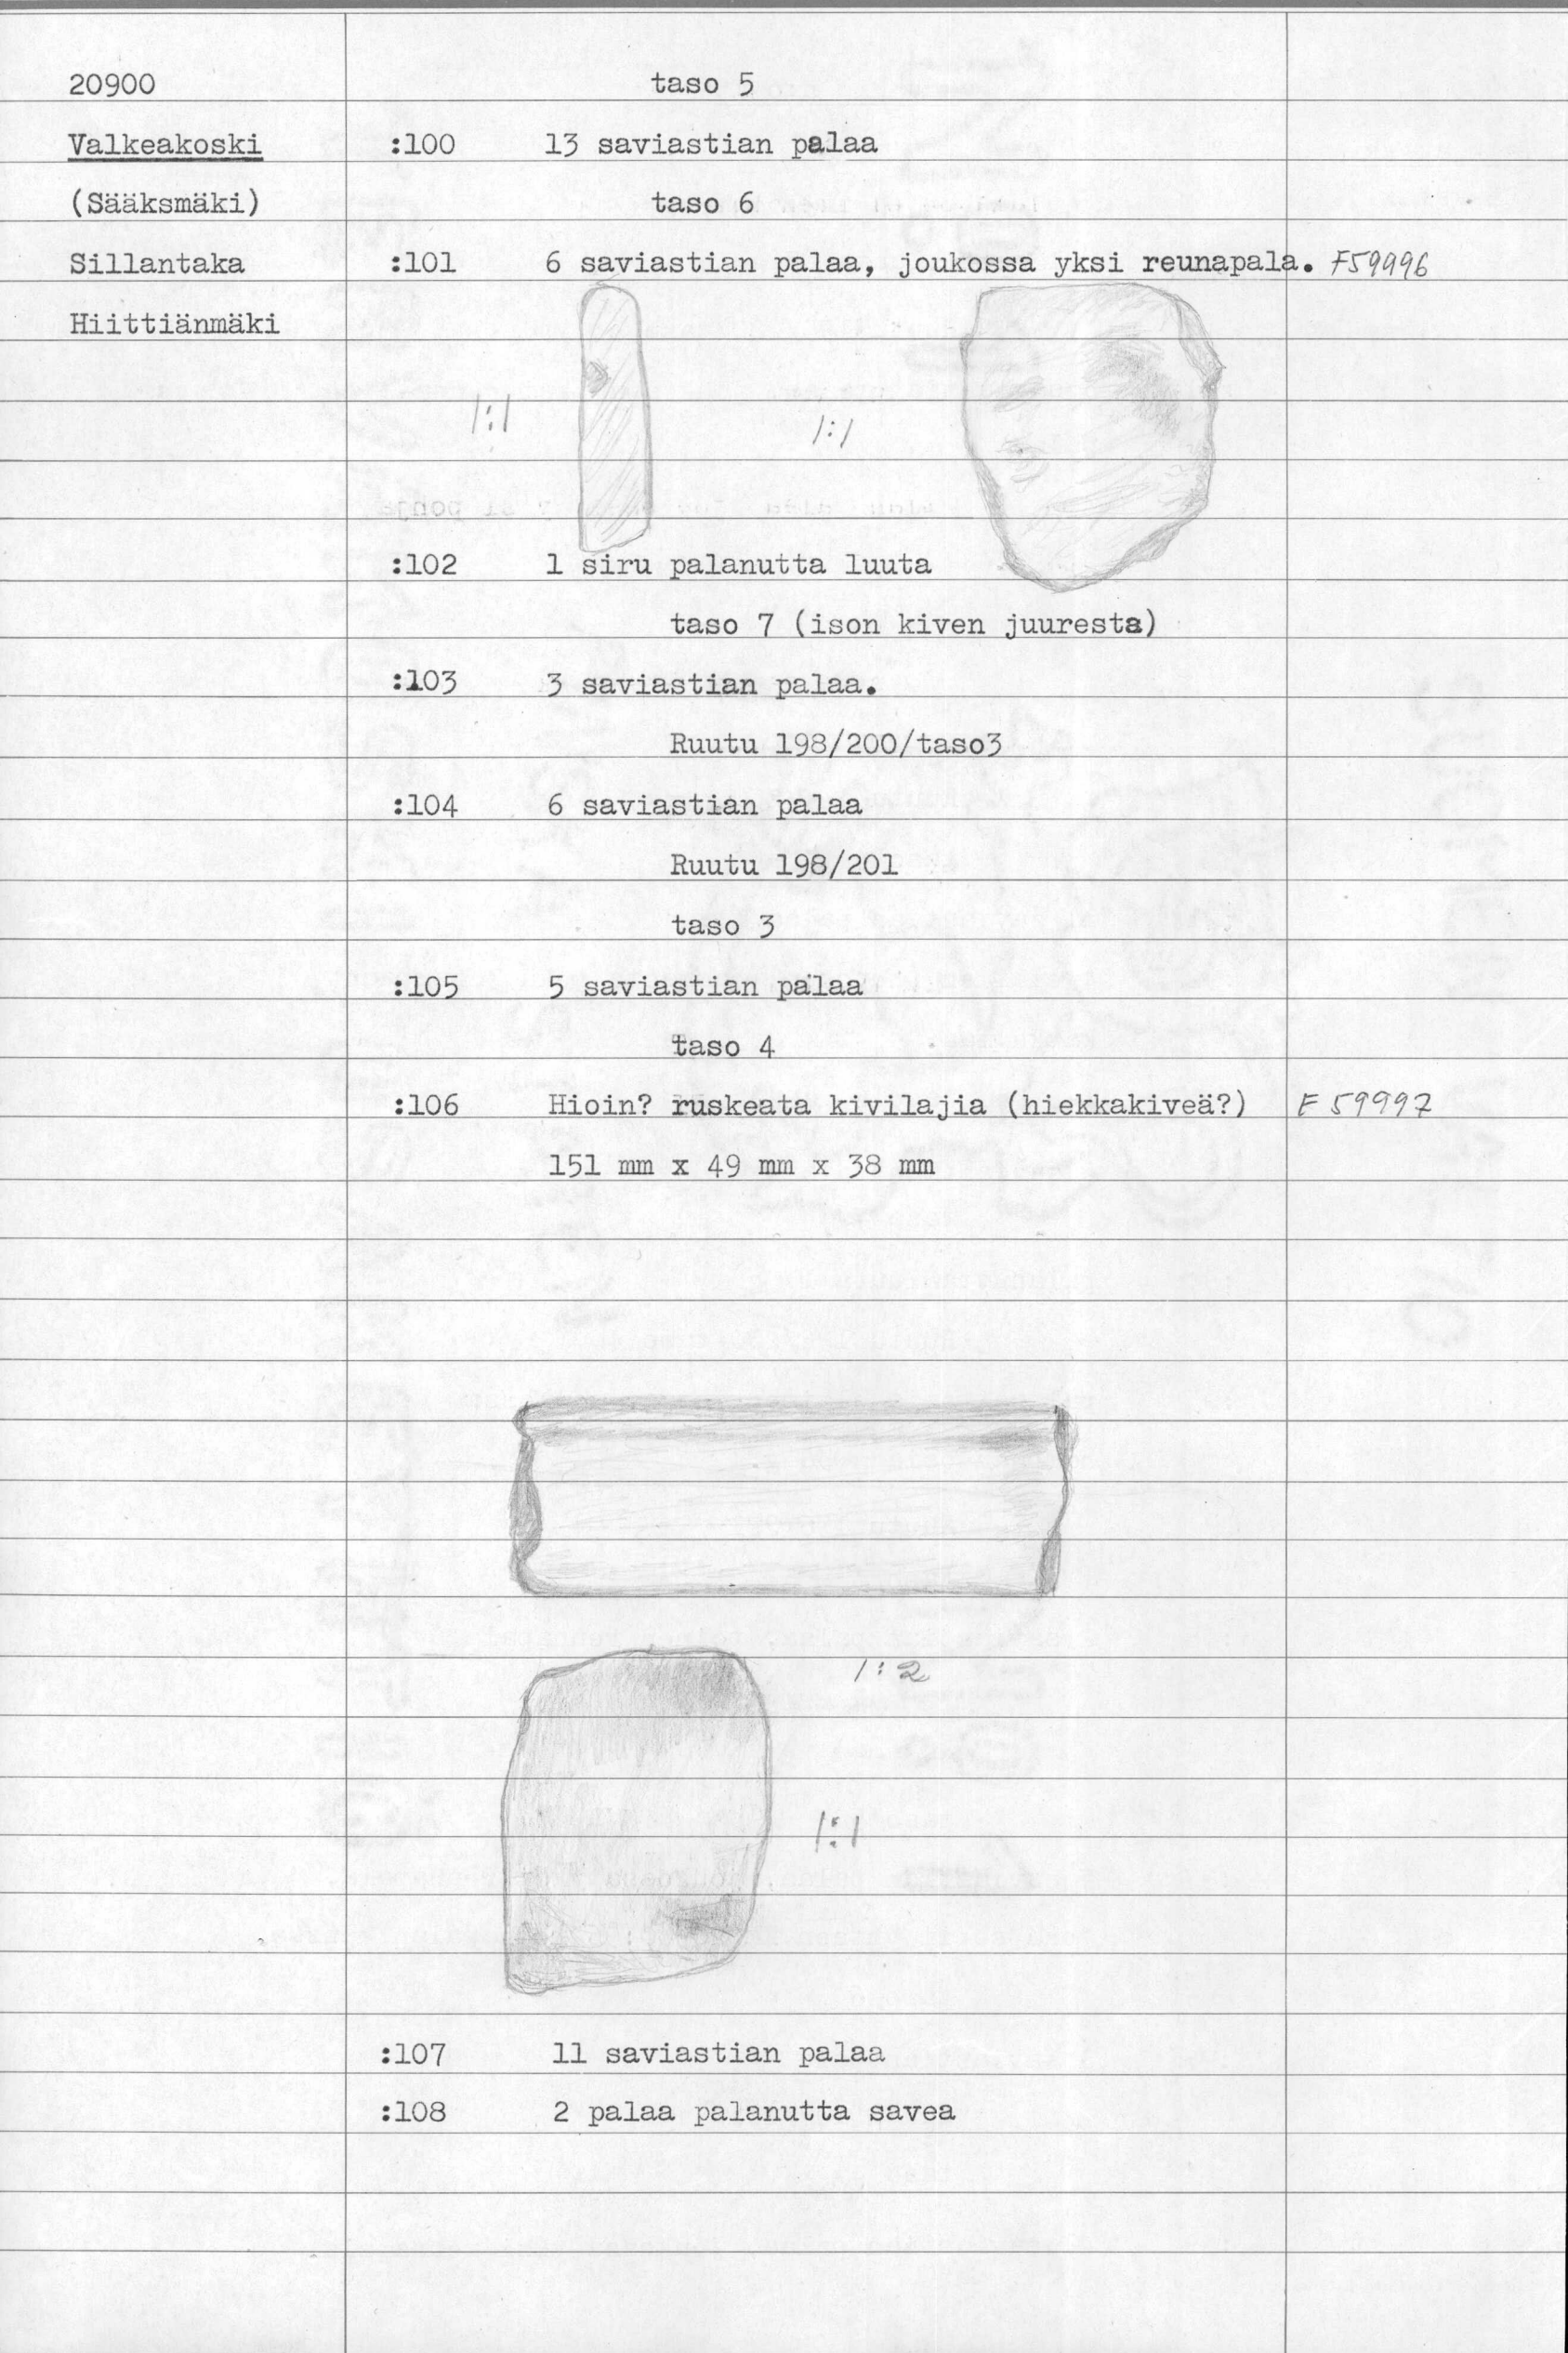 20900 taso 5
Valkeakoski :100 13 saviastian palaa
(Sääksmäki) taso 6
Sillantaka :101 6 saviastian palaa, joukossa yksi reunapala. F59996
Hiittiänmäki
1:1 1:1
:102 1 siru palanutta luuta
taso 7 (ison kiven juuresta)
:103 3 saviastian palaa.
Ruutu 198/200/taso3
:104 6 saviastian palaa
Ruutu 198/201
taso 3
:105 5 saviastian palaa
taso 4
:106 Hioin? ruskeata kivilajia (hiekkakiveä?) F 59997
151 mm x 49 mm x 38 mm
1:2
1:1
:107 11 saviastian palaa
:108 2 palaa palanutta savea